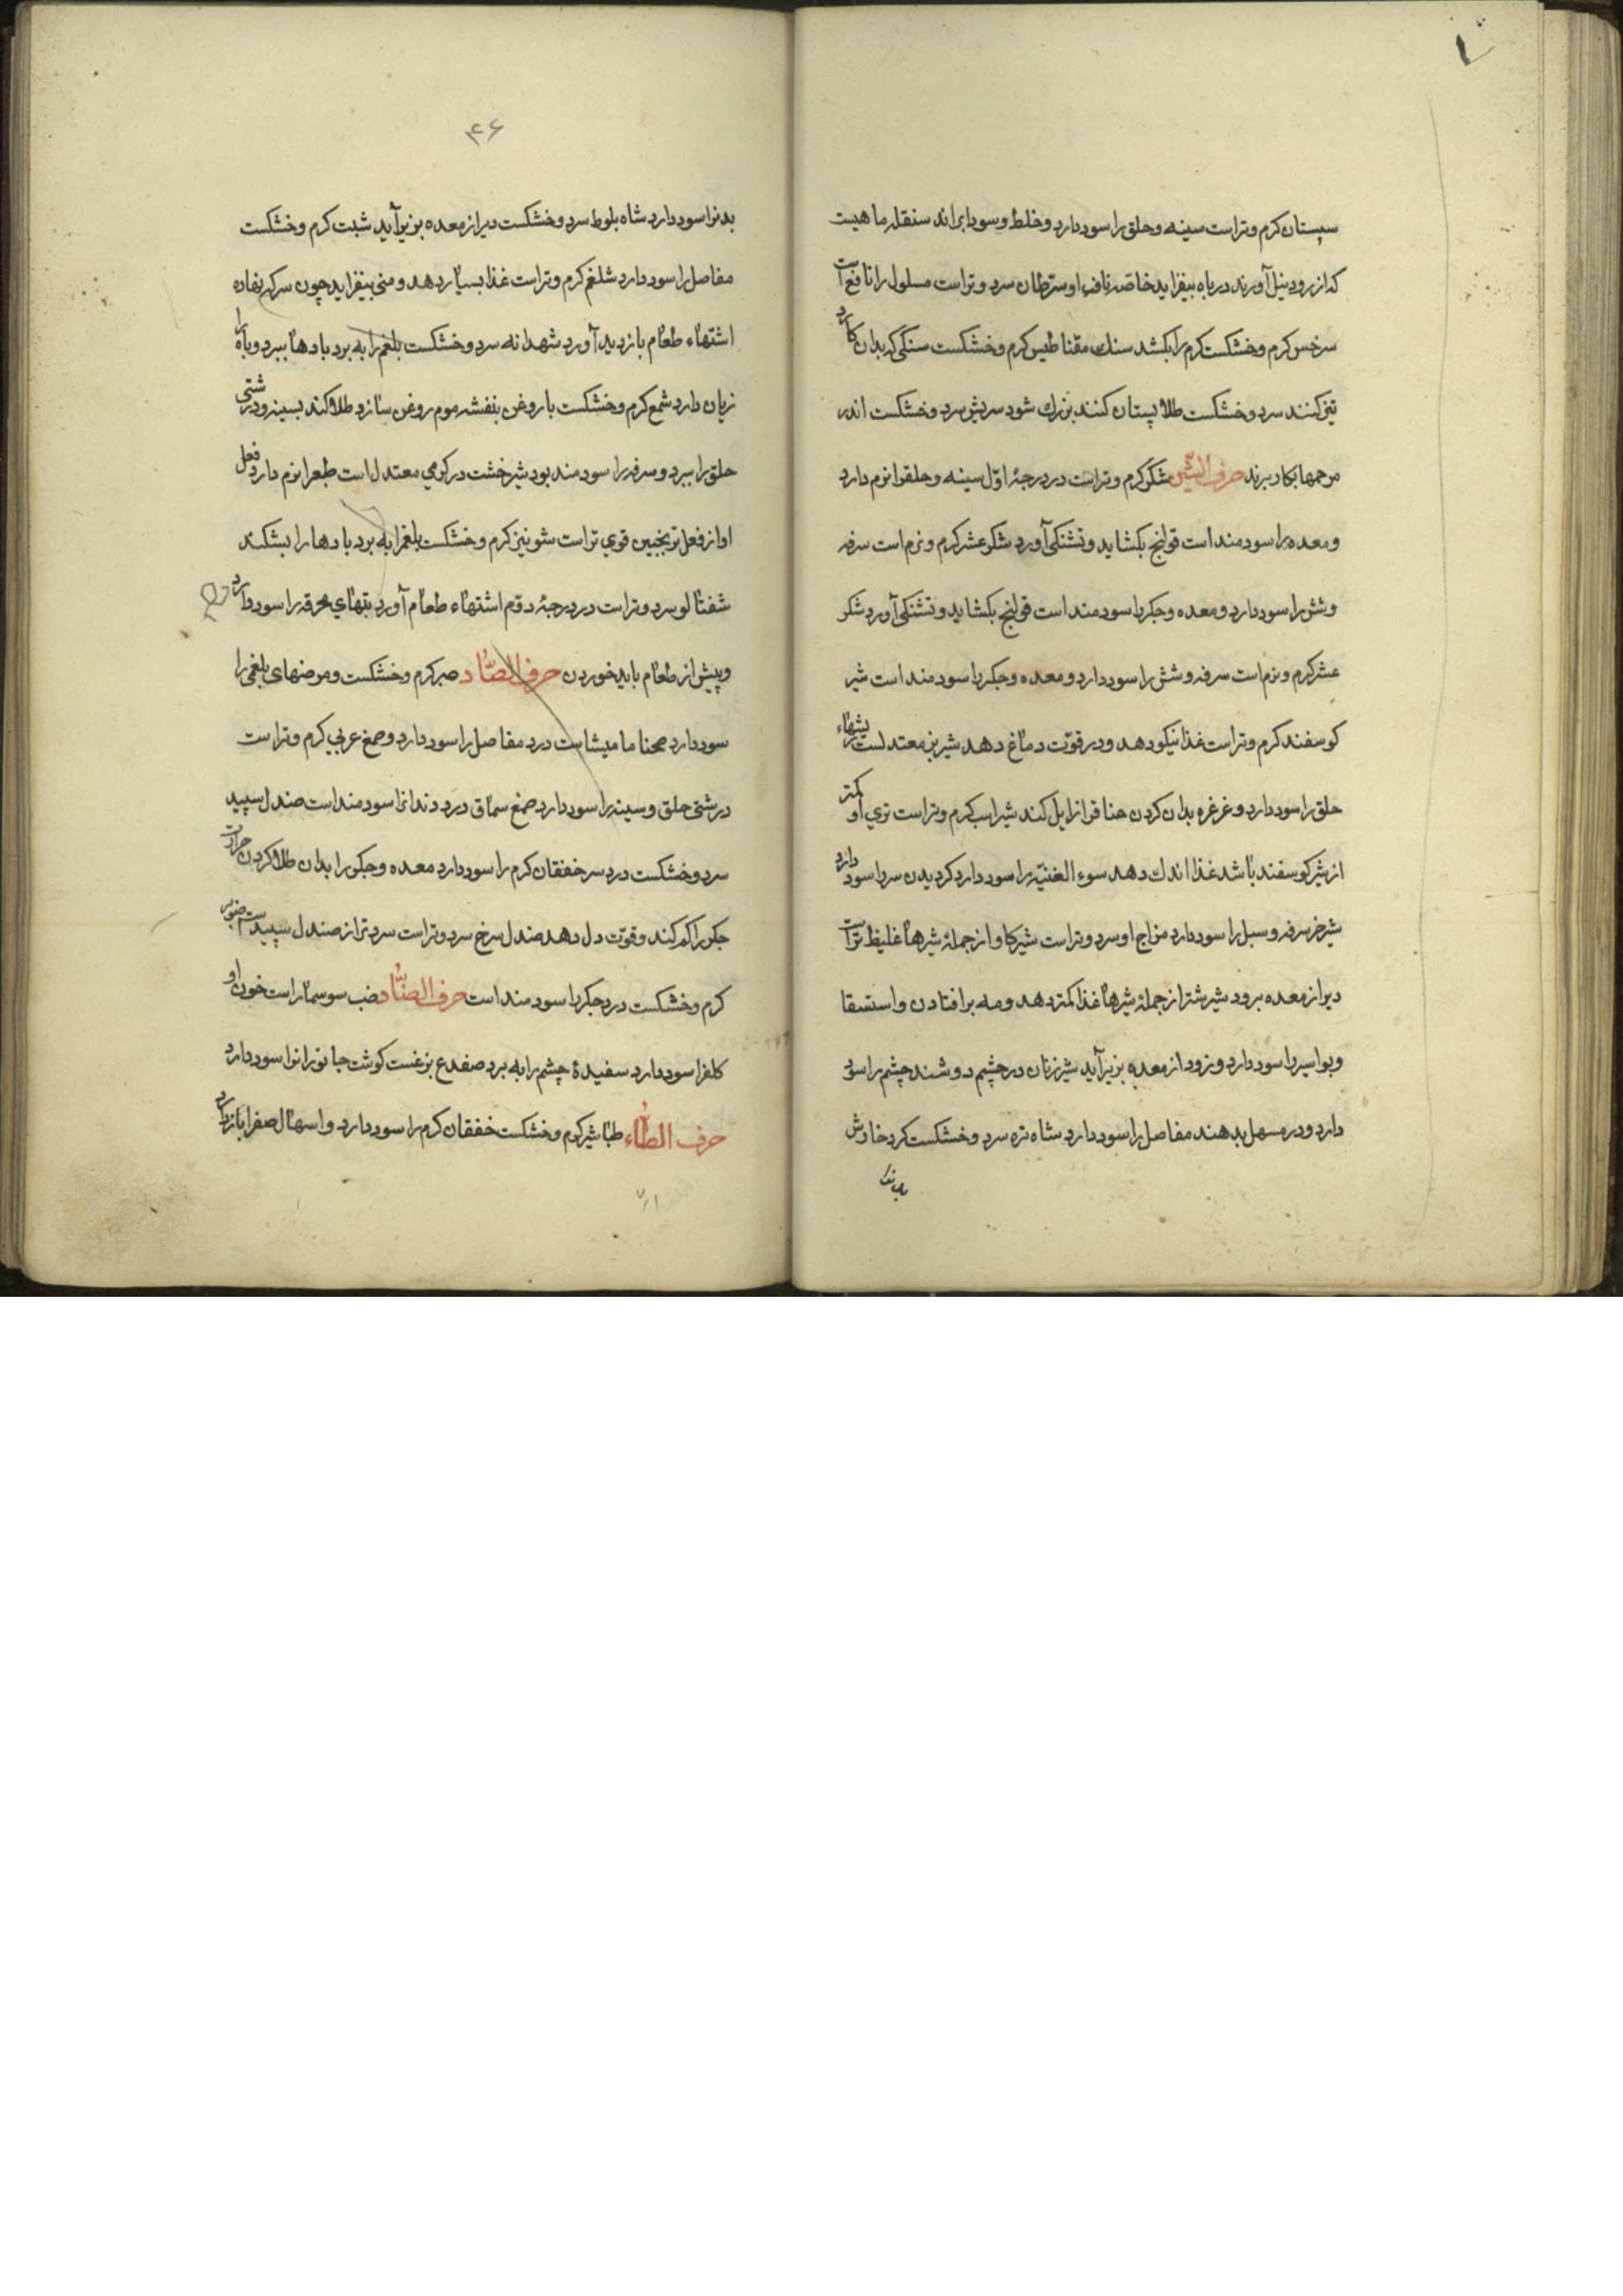 سپستان کرم و تر است سینه و حلق را سود دارد و خلط و سودا براند سنقله ماهیست
که از رود نیل آورند در باه بیفزاید خاصه ناف او سرطان سرد و تر است مسلول را نافع است
سرخس کرم و خشکست کرم را بکشد سنك مقناطیس کرم و خشکست سنکی که بدان کارد
تیز کنند سرد و خشکست طلا پستان کنند بزرك شود سریش سرد و خشکست اندر
مرهمها بکار برند حرف الشین شکر کرم و تر است در درجهٔ اوّل سینه و حلقرا نرم دارد
و معده را سودمند است قولنج بکشاید و تشنکی آورد شکر عشر کرم و نرم است سرفه
و شش را سود دارد و معده و جکر را سودمند است قولنج بکشاید و تشنکی آورد شکر
عشر کرم و نرم است سرفه و شش را سود دارد و معده و جکر را سودمند است شیر
کوسفند کرم و تر است غذا نیکو دهد و در قوّت دماغ دهد شیر بز معتدلست ریشهاء
حلق را سود دارد و غرغره بدان کردن خناق را زایل کند شیر اسب کرم و تر است تری او کمتر
از شیر کوسفند باشد غذا اندك دهد سوء القنیه را سود دارد کردیدن سر را سود دارد
شیر خر سرفه و سل را سود دارد مزاج او سرد و تر است شیر کاو از جملهٔ شیرها غلیظ تر است
دیر از معده برود شیر شتر از جملهٔ شیرها غذا کمتر دهد و مه بر افتادن و استسقا
و بواسیر را سود دارد و زود از معده بزیر آید شیر زنان در چشم دوشند چشم را سود
دارد و در مسهل بدهند مفاصل را سود دارد شاه تره سرد و خشکست کرد خارش
بدنرا
۴۶
بدنرا سود دارد شاه بلوط سرد و خشکست دیر از معده بزیر آید شبت کرم و خشکست
مفاصل را سود دارد شلغم کرم و تر است غذا بسیار دهد و منی بیفزاید چون سرکه نهاده
اشتهاء طعام بازدید آورد شهدانه سرد و خشکست بلغم را به برد بادها ببرد و باه را
زیان دارد شمع کرم و خشکست با روغن بنفشه موم روغن سازد طلا کند بسینه و درشتی
حلق را ببرد و سرفه را سودمند بود شیرخشت در کرمی معتدل است طبع را نرم دارد فعل
او از فعل ترنجبین قوی تر است شونیز کرم و خشکست بلغمرا به برد بادها را بشکند
شفتالو سرد و تر است در درجهٔ دوّم اشتهاء طعام آورد تبهای محرقه را سود دارد
و پیش از طعام باید خوردن حرف الصّاد صبر کرم و خشکست و مرضهای بلغمی را
سود دارد صحنا ما میشاست درد مفاصل را سود دارد و صمغ عربی کرم و تر است
درشتی حلق و سینه را سود دارد صمغ سماق درد دندانرا سودمند است صندل سپید
سرد و خشکست درد سر خفقان کرم را سود دارد معده و جکر را بدان طلا کردن حرارت
جکر را کم کند و قوّت دل دهد صندل سرخ سرد و تر است سرد تر از صندل سپید است صنوبر
کرم و خشکست درد جکر را سودمند است حرف الضّاد ضب سوسمار است خون او
کلفرا سود دارد سفیدهٔ چشم را به برد ضفدع بزغست کوشت جانورانرا سود دارد
حرف الطّاء طباشیر کرم و خشکست خفقان کرم را سود دارد و اسهال صفرا باز دارد